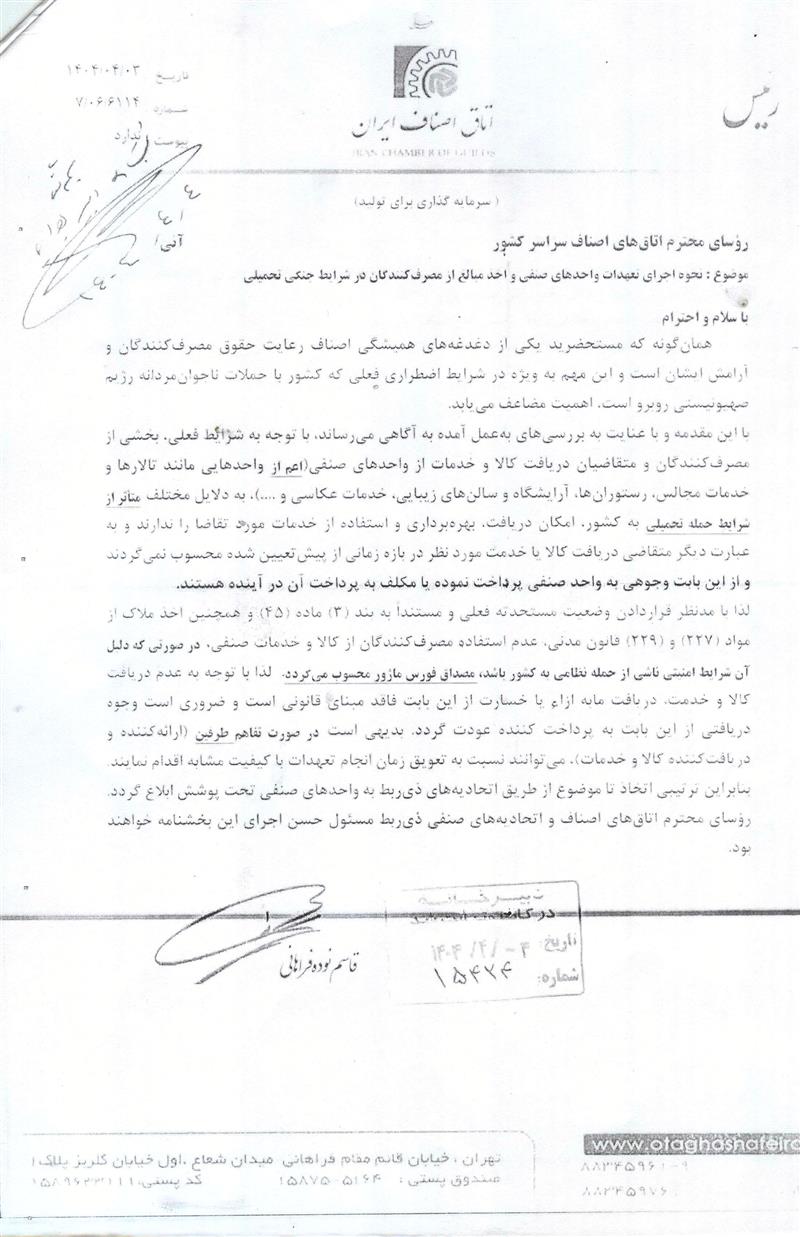 رئیس
اتاق اصناف ایران
IRAN CHAMBER OF GUILDS
تاریخ ۱۴۰۴/۰۴/۰۳
شماره ۷/۰۶/۶۱۱۴
پیوست ندارد
آنی
(سرمایه گذاری برای تولید)
رؤسای محترم اتاق‌های اصناف سراسر کشور
موضوع : نحوه اجرای تعهدات واحدهای صنفی و اخذ مبالغ از مصرف‌کنندگان در شرایط جنگی تحمیلی
با سلام و احترام
همان‌گونه که مستحضرید یکی از دغدغه‌های همیشگی اصناف رعایت حقوق مصرف‌کنندگان و
آرامش ایشان است و این مهم به ویژه در شرایط اضطراری فعلی که کشور با حملات ناجوان‌مردانه رژیم
صهیونیستی روبرو است، اهمیت مضاعف می‌یابد.
با این مقدمه و با عنایت به بررسی‌های به‌عمل آمده به آگاهی می‌رساند، با توجه به شرایط فعلی، بخشی از
مصرف‌کنندگان و متقاضیان دریافت کالا و خدمات از واحدهای صنفی(اعم از واحدهایی مانند تالارها و
خدمات مجالس، رستوران‌ها، آرایشگاه و سالن‌های زیبایی، خدمات عکاسی و ....)، به دلایل مختلف متأثر از
شرایط حمله تحمیلی به کشور، امکان دریافت، بهره‌برداری و استفاده از خدمات مورد تقاضا را ندارند و به
عبارت دیگر متقاضی دریافت کالا یا خدمت مورد نظر در بازه زمانی از پیش‌تعیین شده محسوب نمی‌گردند
و از این بابت وجوهی به واحد صنفی پرداخت نموده یا مکلف به پرداخت آن در آینده هستند.
لذا با مدنظر قراردادن وضعیت مستحدثه فعلی و مستنداً به بند (۳) ماده (۴۵) و همچنین اخذ ملاک از
مواد (۲۲۷) و (۲۲۹) قانون مدنی، عدم استفاده مصرف‌کنندگان از کالا و خدمات صنفی، در صورتی که دلیل
آن شرایط امنیتی ناشی از حمله نظامی به کشور باشد، مصداق فورس ماژور محسوب می‌گردد. لذا با توجه به عدم دریافت
کالا و خدمت، دریافت مابه ازاء یا خسارت از این بابت فاقد مبنای قانونی است و ضروری است وجوه
دریافتی از این بابت به پرداخت کننده عودت گردد. بدیهی است در صورت تفاهم طرفین (ارائه‌کننده و
دریافت‌کننده کالا و خدمات)، می‌توانند نسبت به تعویق زمان انجام تعهدات با کیفیت مشابه اقدام نمایند.
بنابراین ترتیبی اتخاذ تا موضوع از طریق اتحادیه‌های ذی‌ربط به واحدهای صنفی تحت پوشش ابلاغ گردد.
رؤسای محترم اتاق‌های اصناف و اتحادیه‌های صنفی ذی‌ربط مسئول حسن اجرای این بخشنامه خواهند
بود.
قاسم نوده فراهانی
دبیرخانه
تاریخ: ۱۴۰۴/۴/-۴
شماره: ۱۵۴۲۴
تهران ، خیابان قائم مقام فراهانی میدان شعاع ،اول خیابان گلریز پلاک ۱
صندوق پستی : ۵۱۶۴-۱۵۸۷۵ کد پستی: ۱۵۸۹۶۳۳۱۱۱
www.otaghasnafeira
۸۸۳۴۵۹۶۱-۹
۸۸۳۴۵۹۷۶